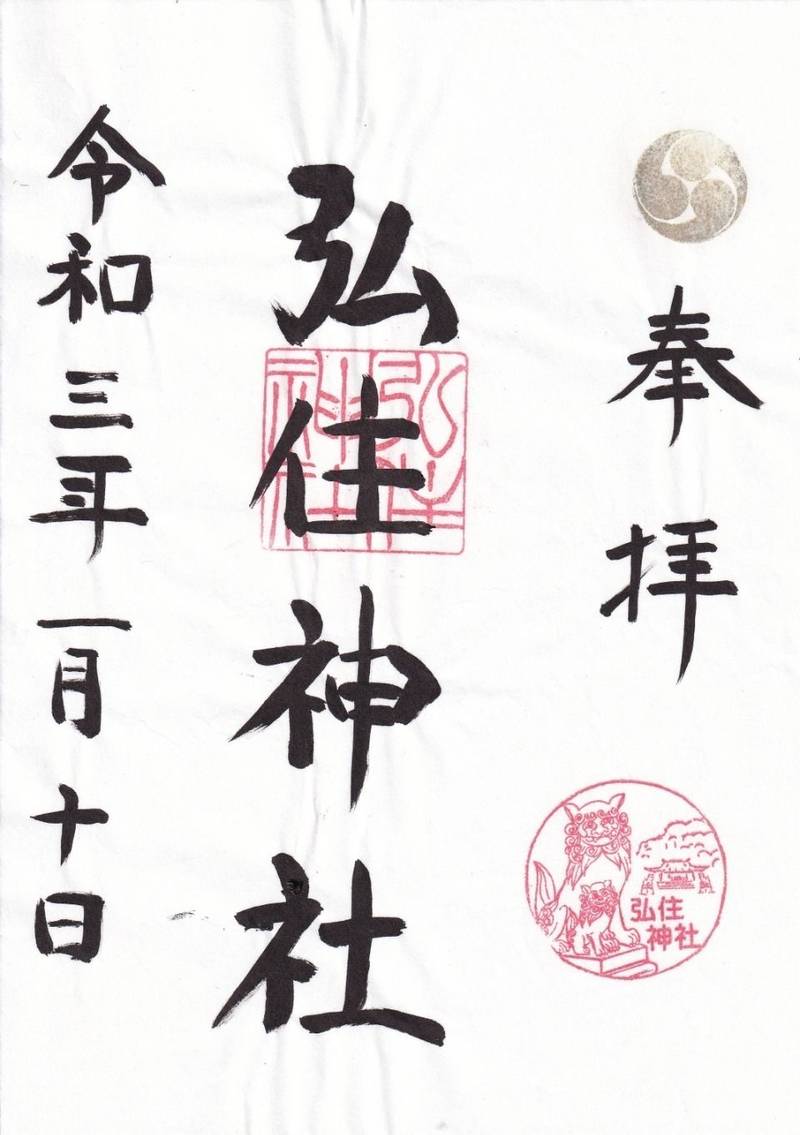 奉拝
弘住神社
弘住神社
令和三年一月十日
弘住
神社